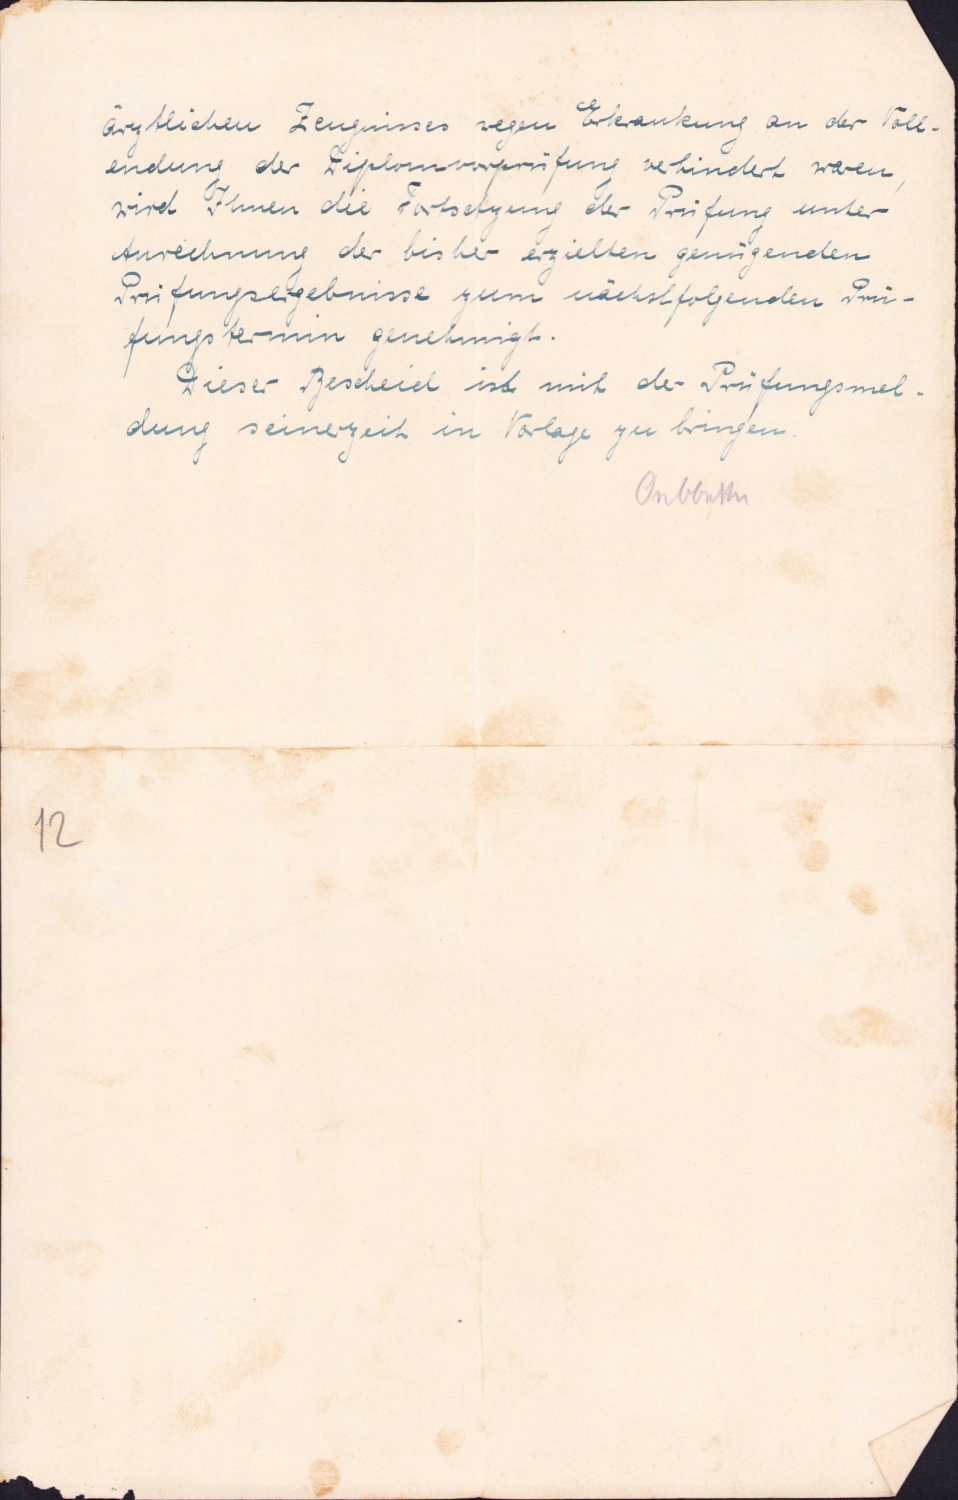 ärztlichen Zeugnisses wegen Erkrankung an der Voll-
endung der Diplomvorprüfung verhindert waren,
wird Ihnen die Fortsetzung der Prüfung unter
Anrechnung der bisher erzielten genügenden
Prüfungsergebnisse zum nächstfolgenden Prü-
fungstermin genehmigt.
Dieser Bescheid ist mit der Prüfungsmel-
dung seinerzeit in Vorlage zu bringen.
12